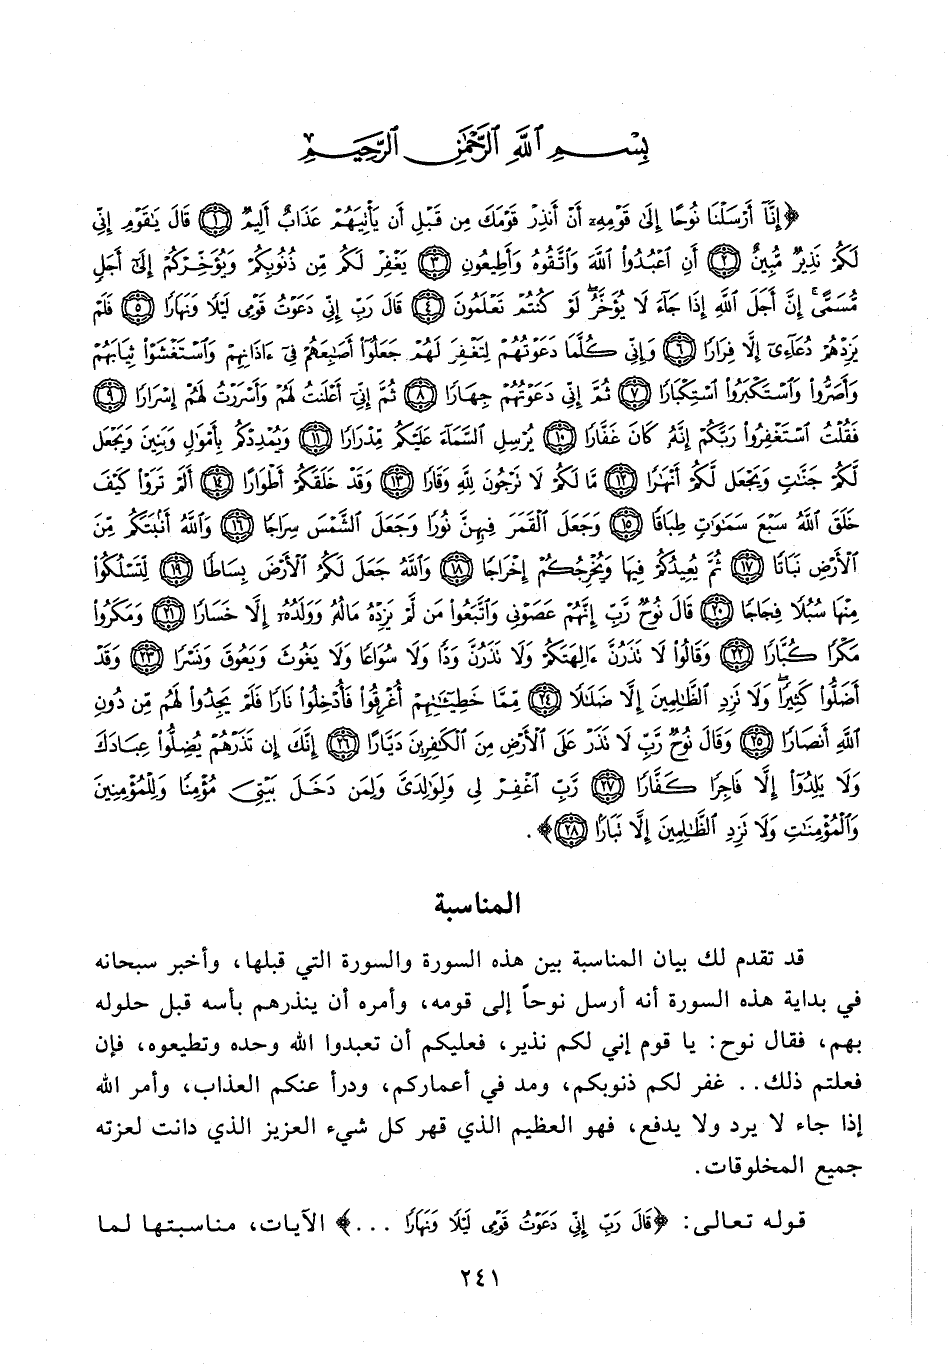 بِسْمِ ٱللَّهِ ٱلرَّحْمَٰنِ ٱلرَّحِيمِ
﴿إِنَّآ أَرْسَلْنَا نُوحًا إِلَىٰ قَوْمِهِۦٓ أَنْ أَنذِرْ قَوْمَكَ مِن قَبْلِ أَن يَأْتِيَهُمْ عَذَابٌ أَلِيمٌ ۝١ قَالَ يَٰقَوْمِ إِنِّي
لَكُمْ نَذِيرٌ مُّبِينٌ ۝٢ أَنِ ٱعْبُدُوا۟ ٱللَّهَ وَٱتَّقُوهُ وَأَطِيعُونِ ۝٣ يَغْفِرْ لَكُم مِّن ذُنُوبِكُمْ وَيُؤَخِّرْكُمْ إِلَىٰٓ أَجَلٍ
مُّسَمًّى ۚ إِنَّ أَجَلَ ٱللَّهِ إِذَا جَآءَ لَا يُؤَخَّرُ ۖ لَوْ كُنتُمْ تَعْلَمُونَ ۝٤ قَالَ رَبِّ إِنِّي دَعَوْتُ قَوْمِى لَيْلًا وَنَهَارًا ۝٥ فَلَمْ
يَزِدْهُمْ دُعَآءِىٓ إِلَّا فِرَارًا ۝٦ وَإِنِّي كُلَّمَا دَعَوْتُهُمْ لِتَغْفِرَ لَهُمْ جَعَلُوٓا۟ أَصَٰبِعَهُمْ فِىٓ ءَاذَانِهِمْ وَٱسْتَغْشَوْا۟ ثِيَابَهُمْ
وَأَصَرُّوا۟ وَٱسْتَكْبَرُوا۟ ٱسْتِكْبَارًا ۝٧ ثُمَّ إِنِّي دَعَوْتُهُمْ جِهَارًا ۝٨ ثُمَّ إِنِّىٓ أَعْلَنتُ لَهُمْ وَأَسْرَرْتُ لَهُمْ إِسْرَارًا ۝٩
فَقُلْتُ ٱسْتَغْفِرُوا۟ رَبَّكُمْ إِنَّهُۥ كَانَ غَفَّارًا ۝١٠ يُرْسِلِ ٱلسَّمَآءَ عَلَيْكُم مِّدْرَارًا ۝١١ وَيُمْدِدْكُم بِأَمْوَٰلٍ وَبَنِينَ وَيَجْعَل
لَّكُمْ جَنَّٰتٍ وَيَجْعَل لَّكُمْ أَنْهَٰرًا ۝١٢ مَّا لَكُمْ لَا تَرْجُونَ لِلَّهِ وَقَارًا ۝١٣ وَقَدْ خَلَقَكُمْ أَطْوَارًا ۝١٤ أَلَمْ تَرَوْا۟ كَيْفَ
خَلَقَ ٱللَّهُ سَبْعَ سَمَٰوَٰتٍ طِبَاقًا ۝١٥ وَجَعَلَ ٱلْقَمَرَ فِيهِنَّ نُورًا وَجَعَلَ ٱلشَّمْسَ سِرَاجًا ۝١٦ وَٱللَّهُ أَنۢبَتَكُم مِّنَ
ٱلْأَرْضِ نَبَاتًا ۝١٧ ثُمَّ يُعِيدُكُمْ فِيهَا وَيُخْرِجُكُمْ إِخْرَاجًا ۝١٨ وَٱللَّهُ جَعَلَ لَكُمُ ٱلْأَرْضَ بِسَاطًا ۝١٩ لِّتَسْلُكُوا۟
مِنْهَا سُبُلًا فِجَاجًا ۝٢٠ قَالَ نُوحٌ رَّبِّ إِنَّهُمْ عَصَوْنِى وَٱتَّبَعُوا۟ مَن لَّمْ يَزِدْهُ مَالُهُۥ وَوَلَدُهُۥٓ إِلَّا خَسَارًا ۝٢١ وَمَكَرُوا۟
مَكْرًا كُبَّارًا ۝٢٢ وَقَالُوا۟ لَا تَذَرُنَّ ءَالِهَتَكُمْ وَلَا تَذَرُنَّ وَدًّا وَلَا سُوَاعًا وَلَا يَغُوثَ وَيَعُوقَ وَنَسْرًا ۝٢٣ وَقَدْ
أَضَلُّوا۟ كَثِيرًا ۖ وَلَا تَزِدِ ٱلظَّٰلِمِينَ إِلَّا ضَلَٰلًا ۝٢٤ مِّمَّا خَطِيٓـَٰٔتِهِمْ أُغْرِقُوا۟ فَأُدْخِلُوا۟ نَارًا فَلَمْ يَجِدُوا۟ لَهُم مِّن دُونِ
ٱللَّهِ أَنصَارًا ۝٢٥ وَقَالَ نُوحٌ رَّبِّ لَا تَذَرْ عَلَى ٱلْأَرْضِ مِنَ ٱلْكَٰفِرِينَ دَيَّارًا ۝٢٦ إِنَّكَ إِن تَذَرْهُمْ يُضِلُّوا۟ عِبَادَكَ
وَلَا يَلِدُوٓا۟ إِلَّا فَاجِرًا كَفَّارًا ۝٢٧ رَّبِّ ٱغْفِرْ لِي وَلِوَٰلِدَىَّ وَلِمَن دَخَلَ بَيْتِىَ مُؤْمِنًا وَلِلْمُؤْمِنِينَ
وَٱلْمُؤْمِنَٰتِ وَلَا تَزِدِ ٱلظَّٰلِمِينَ إِلَّا تَبَارًۢا ۝٢٨﴾.
المناسبة
قد تقدم لك بيان المناسبة بين هذه السورة والسورة التي قبلها، وأخبر سبحانه
في بداية هذه السورة أنه أرسل نوحاً إلى قومه، وأمره أن ينذرهم بأسه قبل حلوله
بهم، فقال نوح: يا قوم إني لكم نذير، فعليكم أن تعبدوا الله وحده وتطيعوه، فإن
فعلتم ذلك.. غفر لكم ذنوبكم، ومد في أعماركم، ودرأ عنكم العذاب، وأمر الله
إذا جاء لا يرد ولا يدفع، فهو العظيم الذي قهر كل شيء العزيز الذي دانت لعزته
جميع المخلوقات.
قوله تعالى: ﴿قَالَ رَبِّ إِنِّي دَعَوْتُ قَوْمِى لَيْلًا وَنَهَارًا ...﴾ الآيات، مناسبتها لما
٢٤١